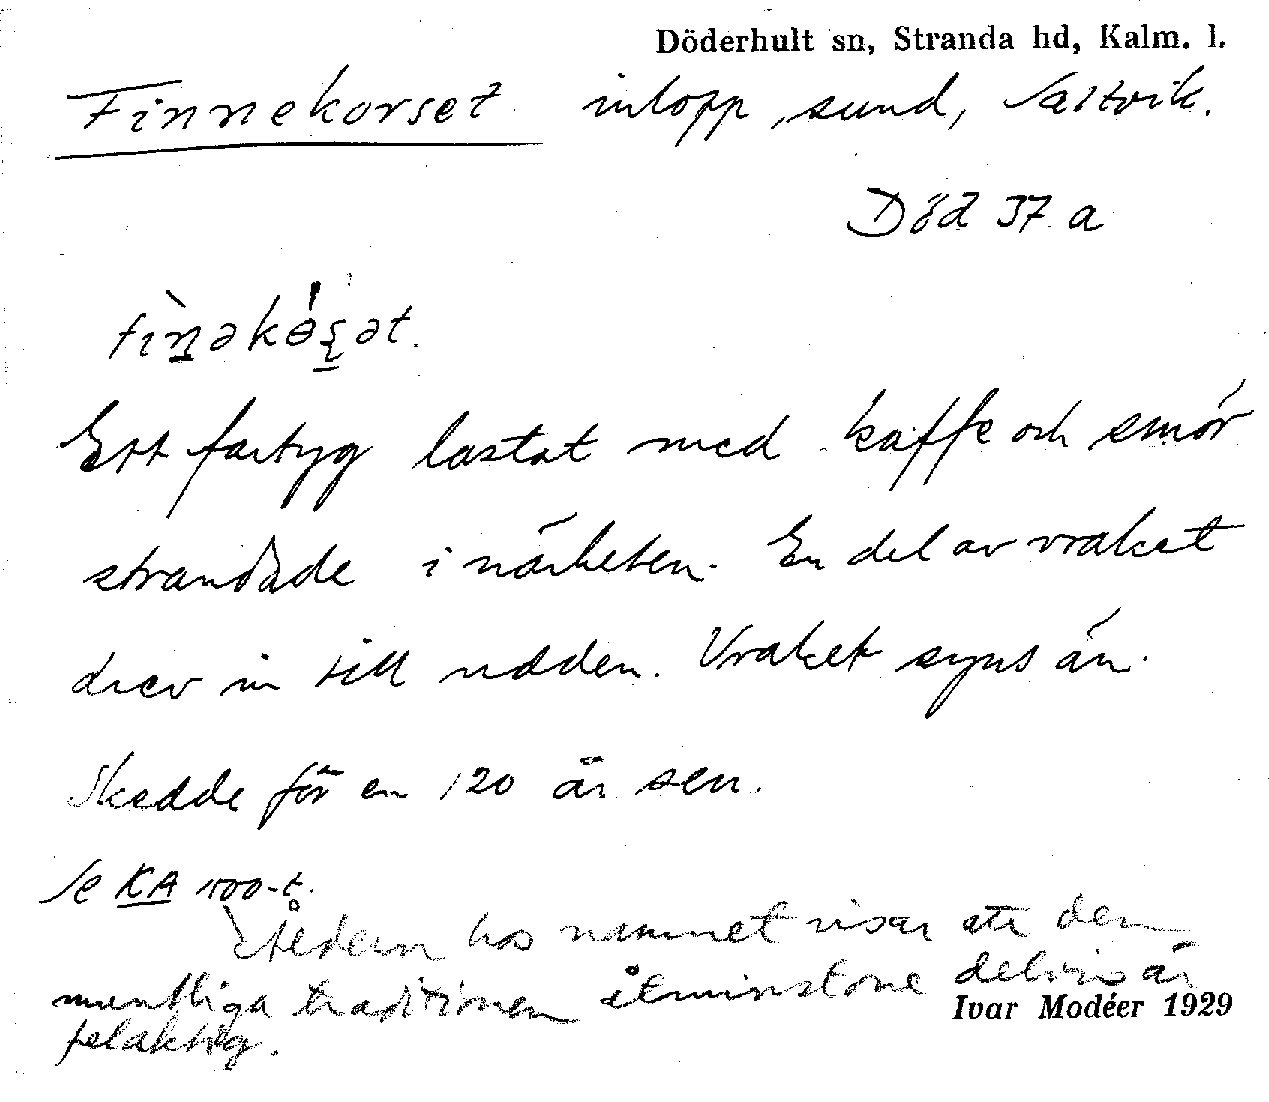 Döderhult sn, Stranda hd, Kalm. l.
Finnekorset inlopp, sund, Saltvik.
Död 37 a
Ett fartyg lastat med kaffe och smör
strandade i närheten. En del av vraket
drev in till udden. Vraket syns än.
Skedde för en 120 år sen.
Se KA 1500-t.
Åldern hos namnet visar att den
muntliga traditionen åtminstone delvis är
felaktig.
Ivar Modéer 1929